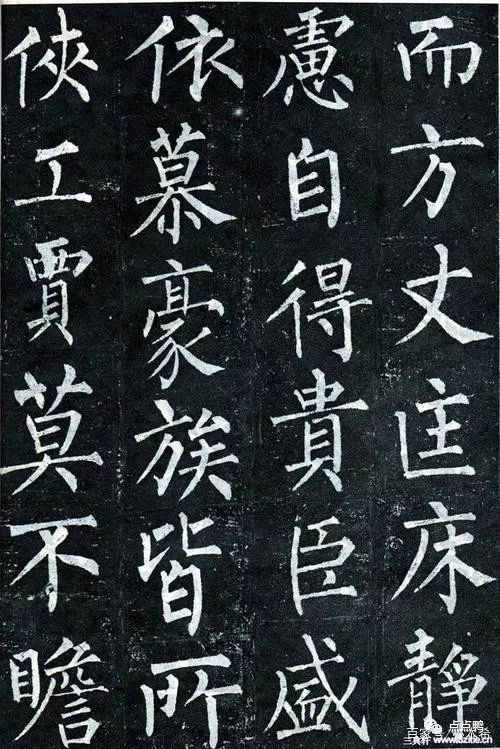 而方丈匡床靜
慮自得貴臣盛
依慕豪族皆所
俠工賈莫不瞻
点点鸭